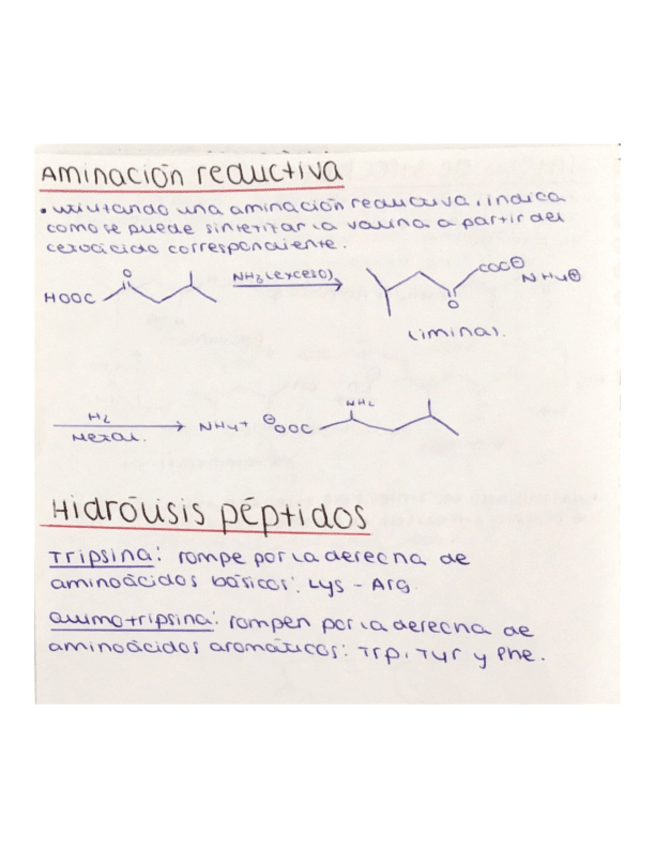 Aminación reductiva
• utilizando una aminación reductiva, indica
como se puede sintetizar la valina a partir del
cetoácido correspondiente.
O
HOOC
NH3 (exceso)
COO⊖
NH4⊕
O
(imina).
H2
Metal.
NH4+ ⊖OOC
NH2
Hidrólisis péptidos
Tripsina: rompe por la derecha de
aminoácidos básicos: Lys - Arg.
Quimotripsina: rompen por la derecha de
aminoácidos aromáticos: Trp, Tyr y Phe.